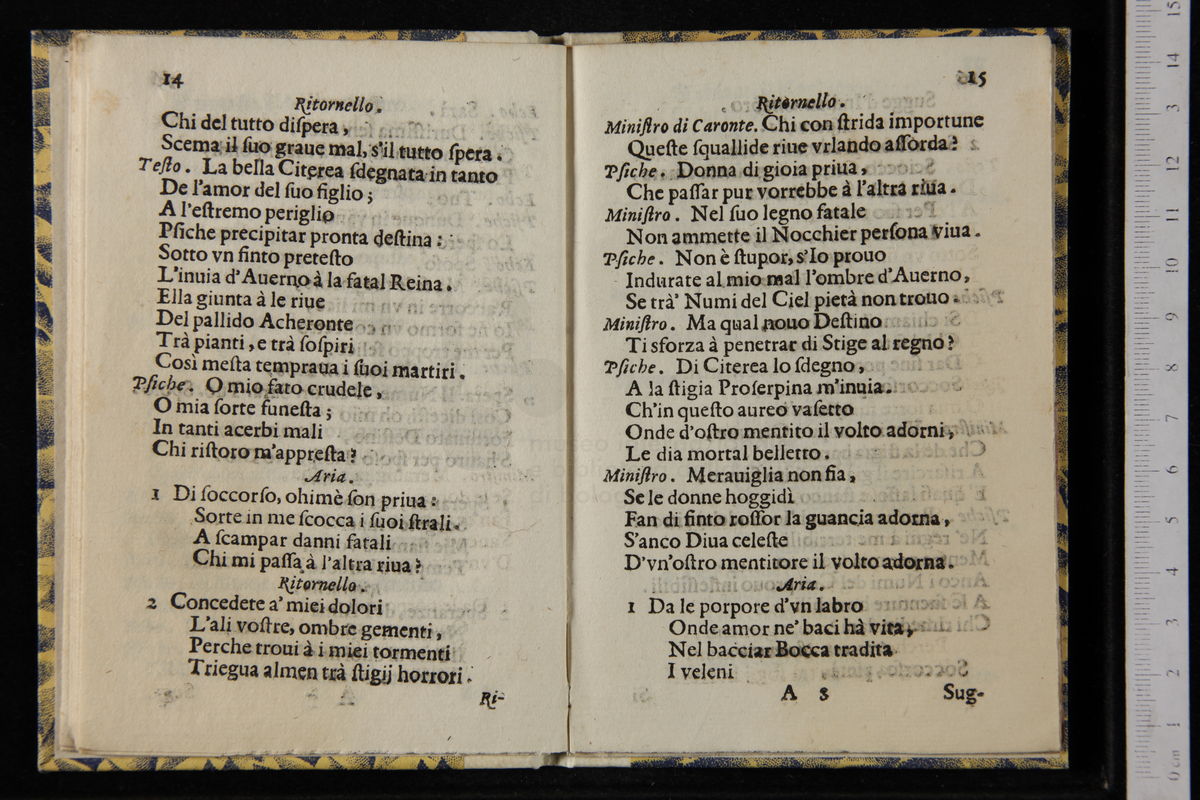 14
Ritornello.
Chi del tutto diſpera,
Scema il ſuo graue mal, s'il tutto ſpera.
Teſto. La bella Citerea ſdegnata in tanto
De l'amor del ſuo figlio;
A l'eſtremo periglio
Pſiche precipitar pronta deſtina:
Sotto vn finto preteſto
L'inuia d'Auerno à la fatal Reina.
Ella giunta à le riue
Del pallido Acheronte
Trà pianti, e trà ſoſpiri
Così meſta tempraua i ſuoi martiri.
Pſiche. O mio fato crudele,
O mia ſorte funeſta;
In tanti acerbi mali
Chi riſtoro m'appreſta?
Aria.
1 Di ſoccorſo, ohimè ſon priua:
Sorte in me ſcocca i ſuoi ſtrali.
A ſcampar danni fatali
Chi mi paſſa à l'altra riua?
Ritornello.
2 Concedete a' miei dolori
L'ali voſtre, ombre gementi,
Perche troui à i miei tormenti
Triegua almen trà ſtigij horrori.
Ri-
15
Ritornello.
Miniſtro di Caronte. Chi con ſtrida importune
Queſte ſquallide riue vrlando aſſorda?
Pſiche. Donna di gioia priua,
Che paſſar pur vorrebbe à l'altra riua.
Miniſtro. Nel ſuo legno fatale
Non ammette il Nocchier perſona viua.
Pſiche. Non è ſtupor, s'Io prouo
Indurate al mio mal l'ombre d'Auerno,
Se trà' Numi del Ciel pietà non trouo.
Miniſtro. Ma qual nouo Deſtino
Ti sforza à penetrar di Stige al regno?
Pſiche. Di Citerea lo ſdegno,
A la ſtigia Proſerpina m'inuia.
Ch'in queſto aureo vaſetto
Onde d'oſtro mentito il volto adorni,
Le dia mortal belletto.
Miniſtro. Merauiglia non fia,
Se le donne hoggidì
Fan di finto roſſor la guancia adorna,
S'anco Diua celeſte
D'vn'oſtro mentitore il volto adorna.
Aria.
1 Da le porpore d'vn labro
Onde amor ne' baci hà vita,
Nel bacciar Bocca tradita
I veleni
A 8
Sug-